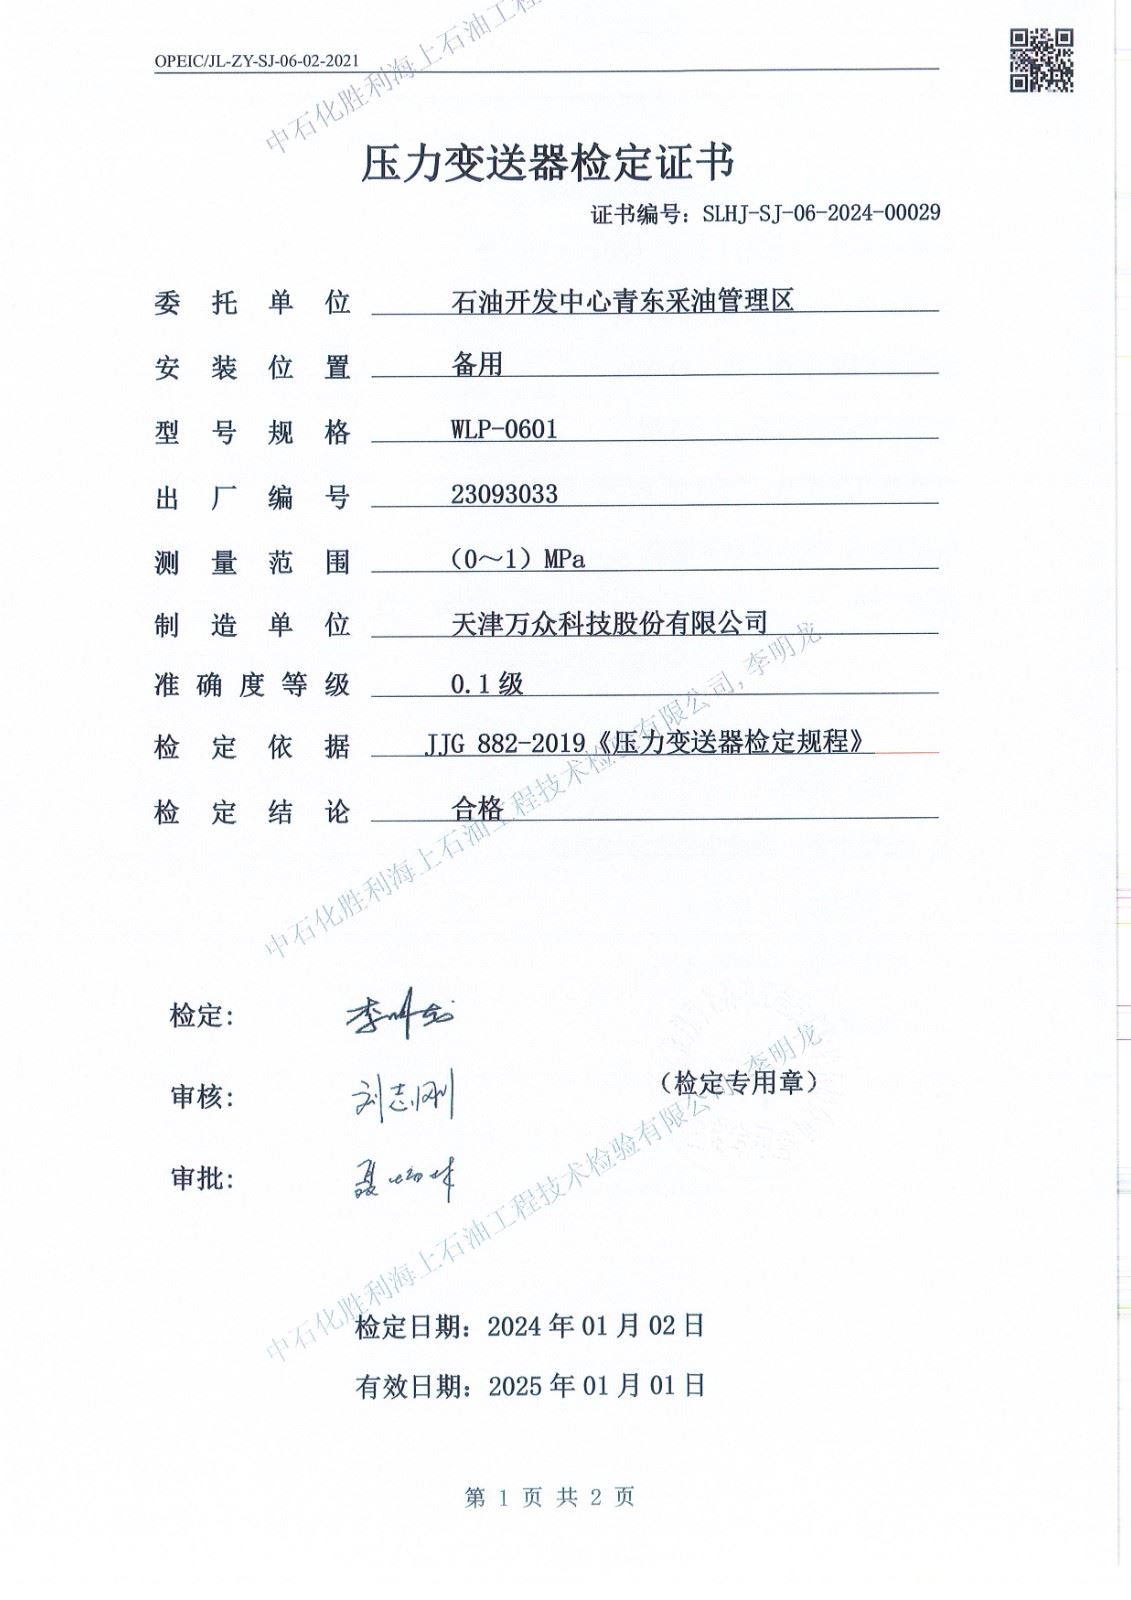 OPEIC/JL-ZY-SJ-06-02-2021
中石化胜利海上石油工程
压力变送器检定证书
证书编号：SLHJ-SJ-06-2024-00029
委托单位 石油开发中心青东采油管理区
安装位置 备用
型号规格 WLP-0601
出厂编号 23093033
测量范围 （0～1）MPa
制造单位 天津万众科技股份有限公司
准确度等级 0.1级
检定依据 JJG 882-2019《压力变送器检定规程》
检定结论 合格
中石化胜利海上石油工程技术检验有限公司,李明龙
检定： 李明龙
审核： 刘志刚
（检定专用章）
审批：
中石化胜利海上石油工程技术检验有限公司,李明龙
检定日期：2024年01月02日
有效日期：2025年01月01日
第 1 页 共 2 页